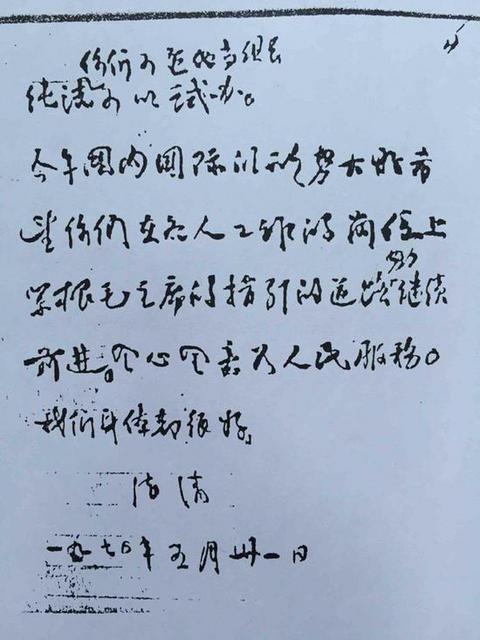 4
你们可
可以试办。
今年国内国际形势大好希
望你们在各人工作的岗位上
跟毛主席的指引的道路继续
前进。全心全意为人民服务。
我们身体都很好。
清
一九七〇年五月卅一日